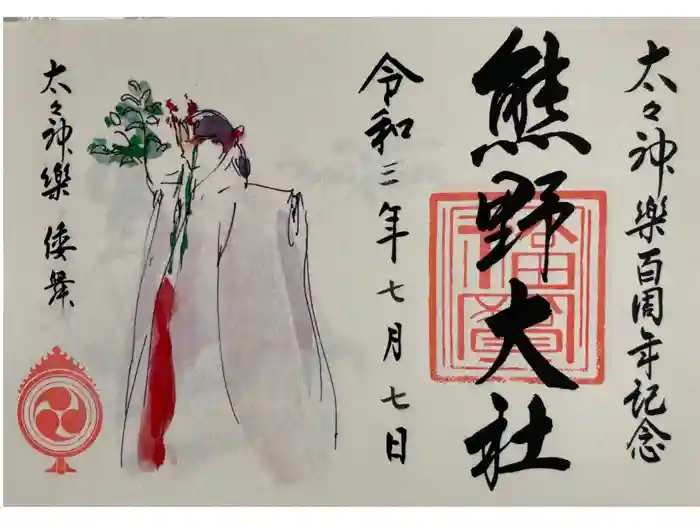 太々神樂百周年記念
熊野大社
令和三年七月七日
太々神樂 倭舞